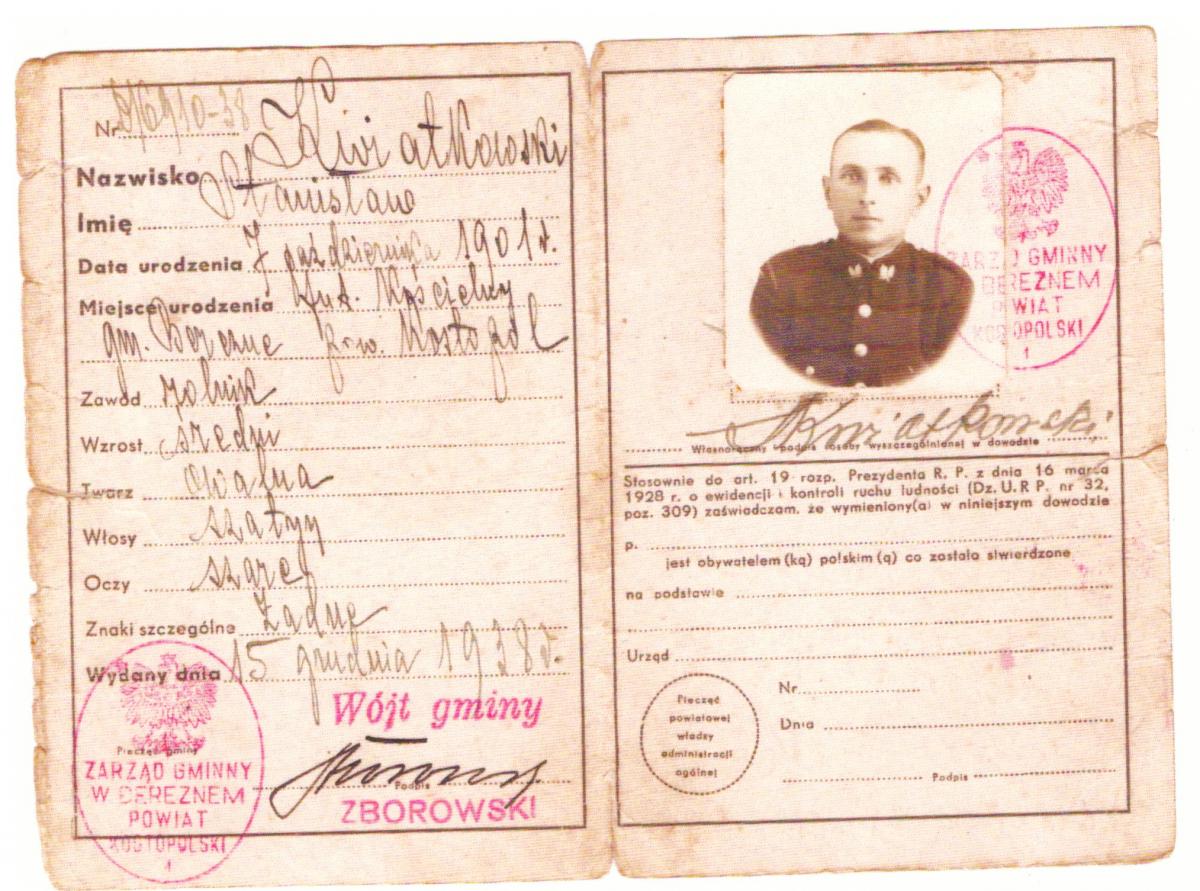 Nr
Nazwisko Kwiatkowski
Imię Stanisław
Data urodzenia 7 października 1901 r.
Miejsce urodzenia Kościelny
gm. Berezne pow. Kostopol
Zawód rolnik
Wzrost średni
Twarz owalna
Włosy szatyn
Oczy szare
Znaki szczególne żadne
Wydany dnia 15 grudnia 1938 r.
Wójt gminy
Pieczęć gminy
Podpis
ZBOROWSKI
ZARZĄD GMINNY
W BEREZNEM
POWIAT
KOSTOPOLSKI
1
ZARZĄD GMINNY
BEREZNEM
POWIAT
KOSTOPOLSKI
1
Kwiatkowski
Własnoręczny podpis osoby wyszczególnionej w dowodzie
Stosownie do art. 19 rozp. Prezydenta R. P. z dnia 16 marca
1928 r. o ewidencji i kontroli ruchu ludności (Dz. U. R P. nr 32,
poz. 309) zaświadczam, że wymieniony(a) w niniejszym dowodzie
p.
jest obywatelem (ką) polskim (ą) co zostało stwierdzone
na podstawie
Urząd
Pieczęć
powiatowej
władzy
administracji
ogólnej
Nr
Dnia
Podpis